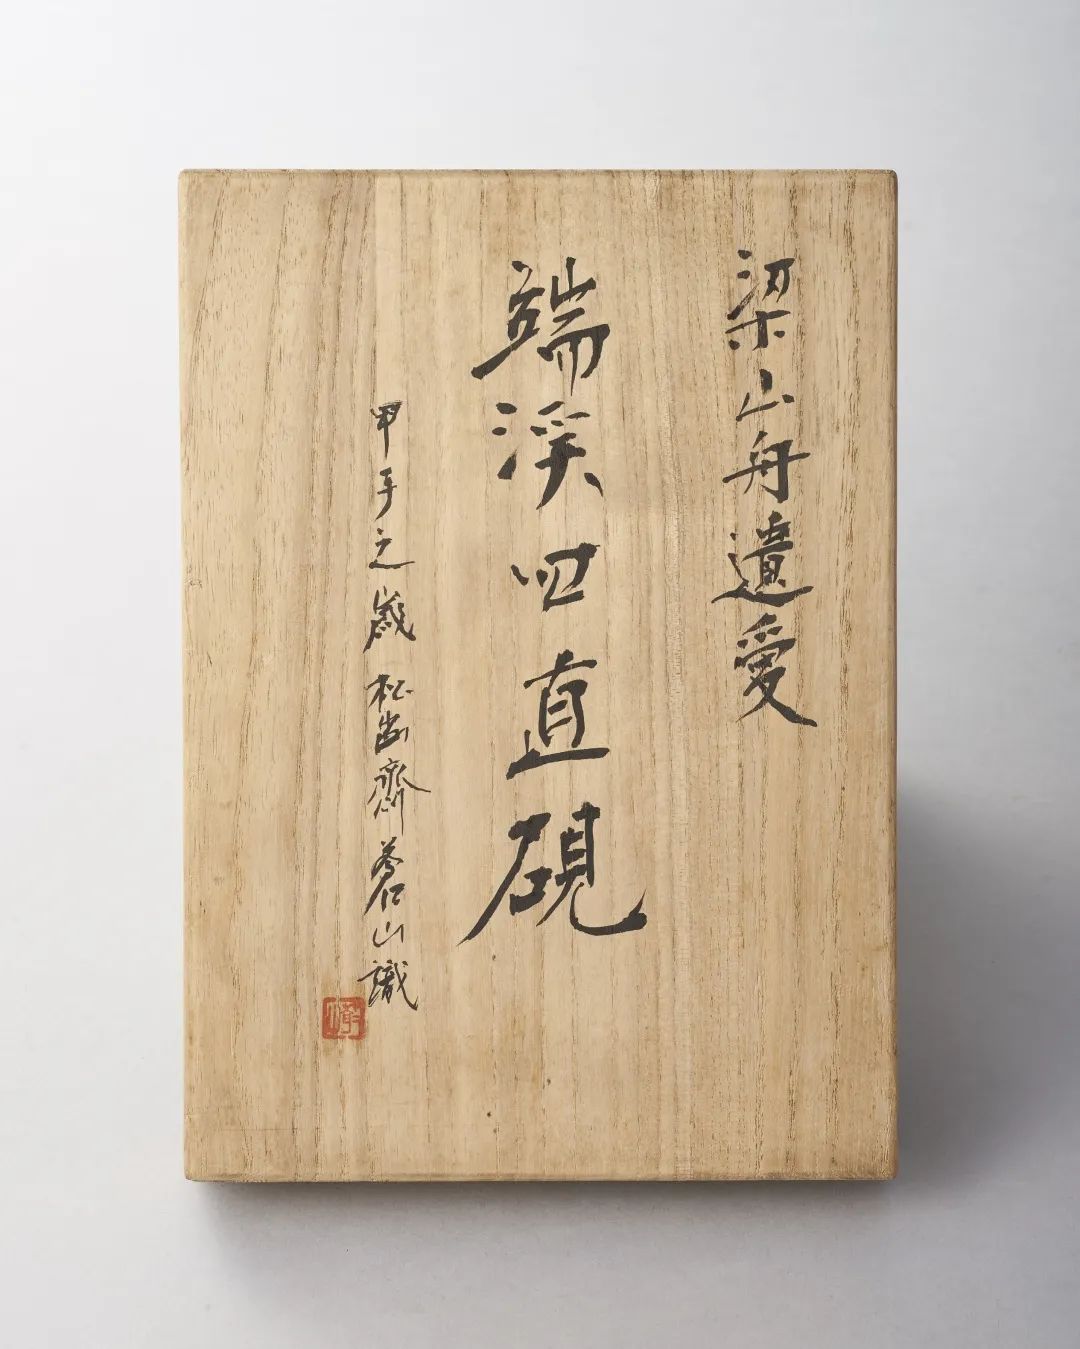 梁山舟遺愛
端溪四直硯
甲子之歲 松 齋 蒼山識